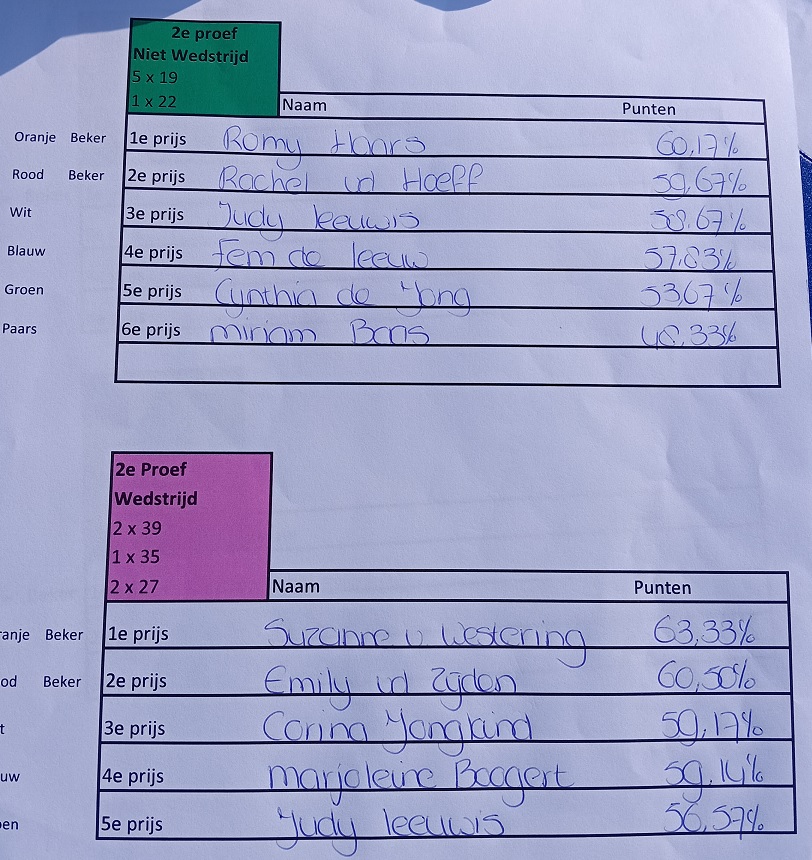 2e proef
Niet Wedstrijd
5 x 19
1 x 22
Naam Punten
Oranje Beker 1e prijs Romy Haars 60,17%
Rood Beker 2e prijs Rachel vd Hoeff 59,67%
Wit 3e prijs Judy leeuwis 58,67%
Blauw 4e prijs Fem de leeuw 57,83%
Groen 5e prijs Cynthia de Jong 53,67%
Paars 6e prijs miriam Baas 48,33%
2e Proef
Wedstrijd
2 x 39
1 x 35
2 x 27
Naam Punten
ranje Beker 1e prijs Suzanne v Westering 63,33%
od Beker 2e prijs Emily vd Zijden 60,50%
t 3e prijs Corina Jongkind 59,17%
uw 4e prijs marjoleine Boogert 59,14%
en 5e prijs Judy leeuwis 56,57%